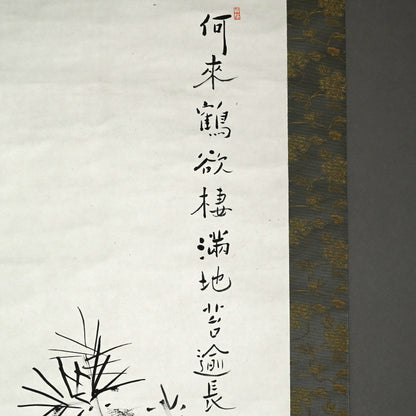 何來鶴欲棲滿地苔逾長